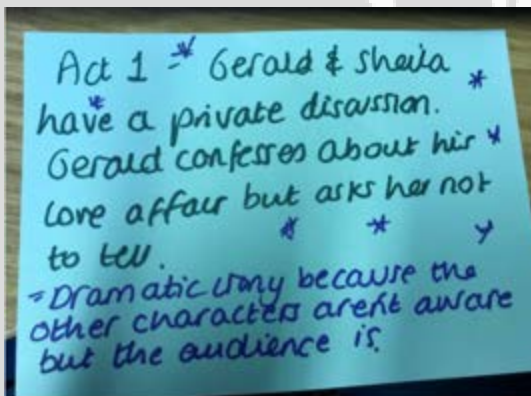 Act 1 - Gerald & Sheila
have a private discussion.
Gerald confesses about his
love affair but asks her not
to tell.
= Dramatic irony because the
other characters aren't aware
but the audience is.